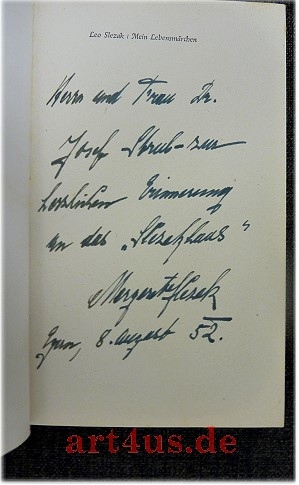 Leo Slezak : Mein Lebensmärchen
Herrn und Frau Dr.
Josef Strub - zur
herzlichen Erinnerung
an das „Slezakhaus“
Margarete Slezak
8. August 52.
art4us.de